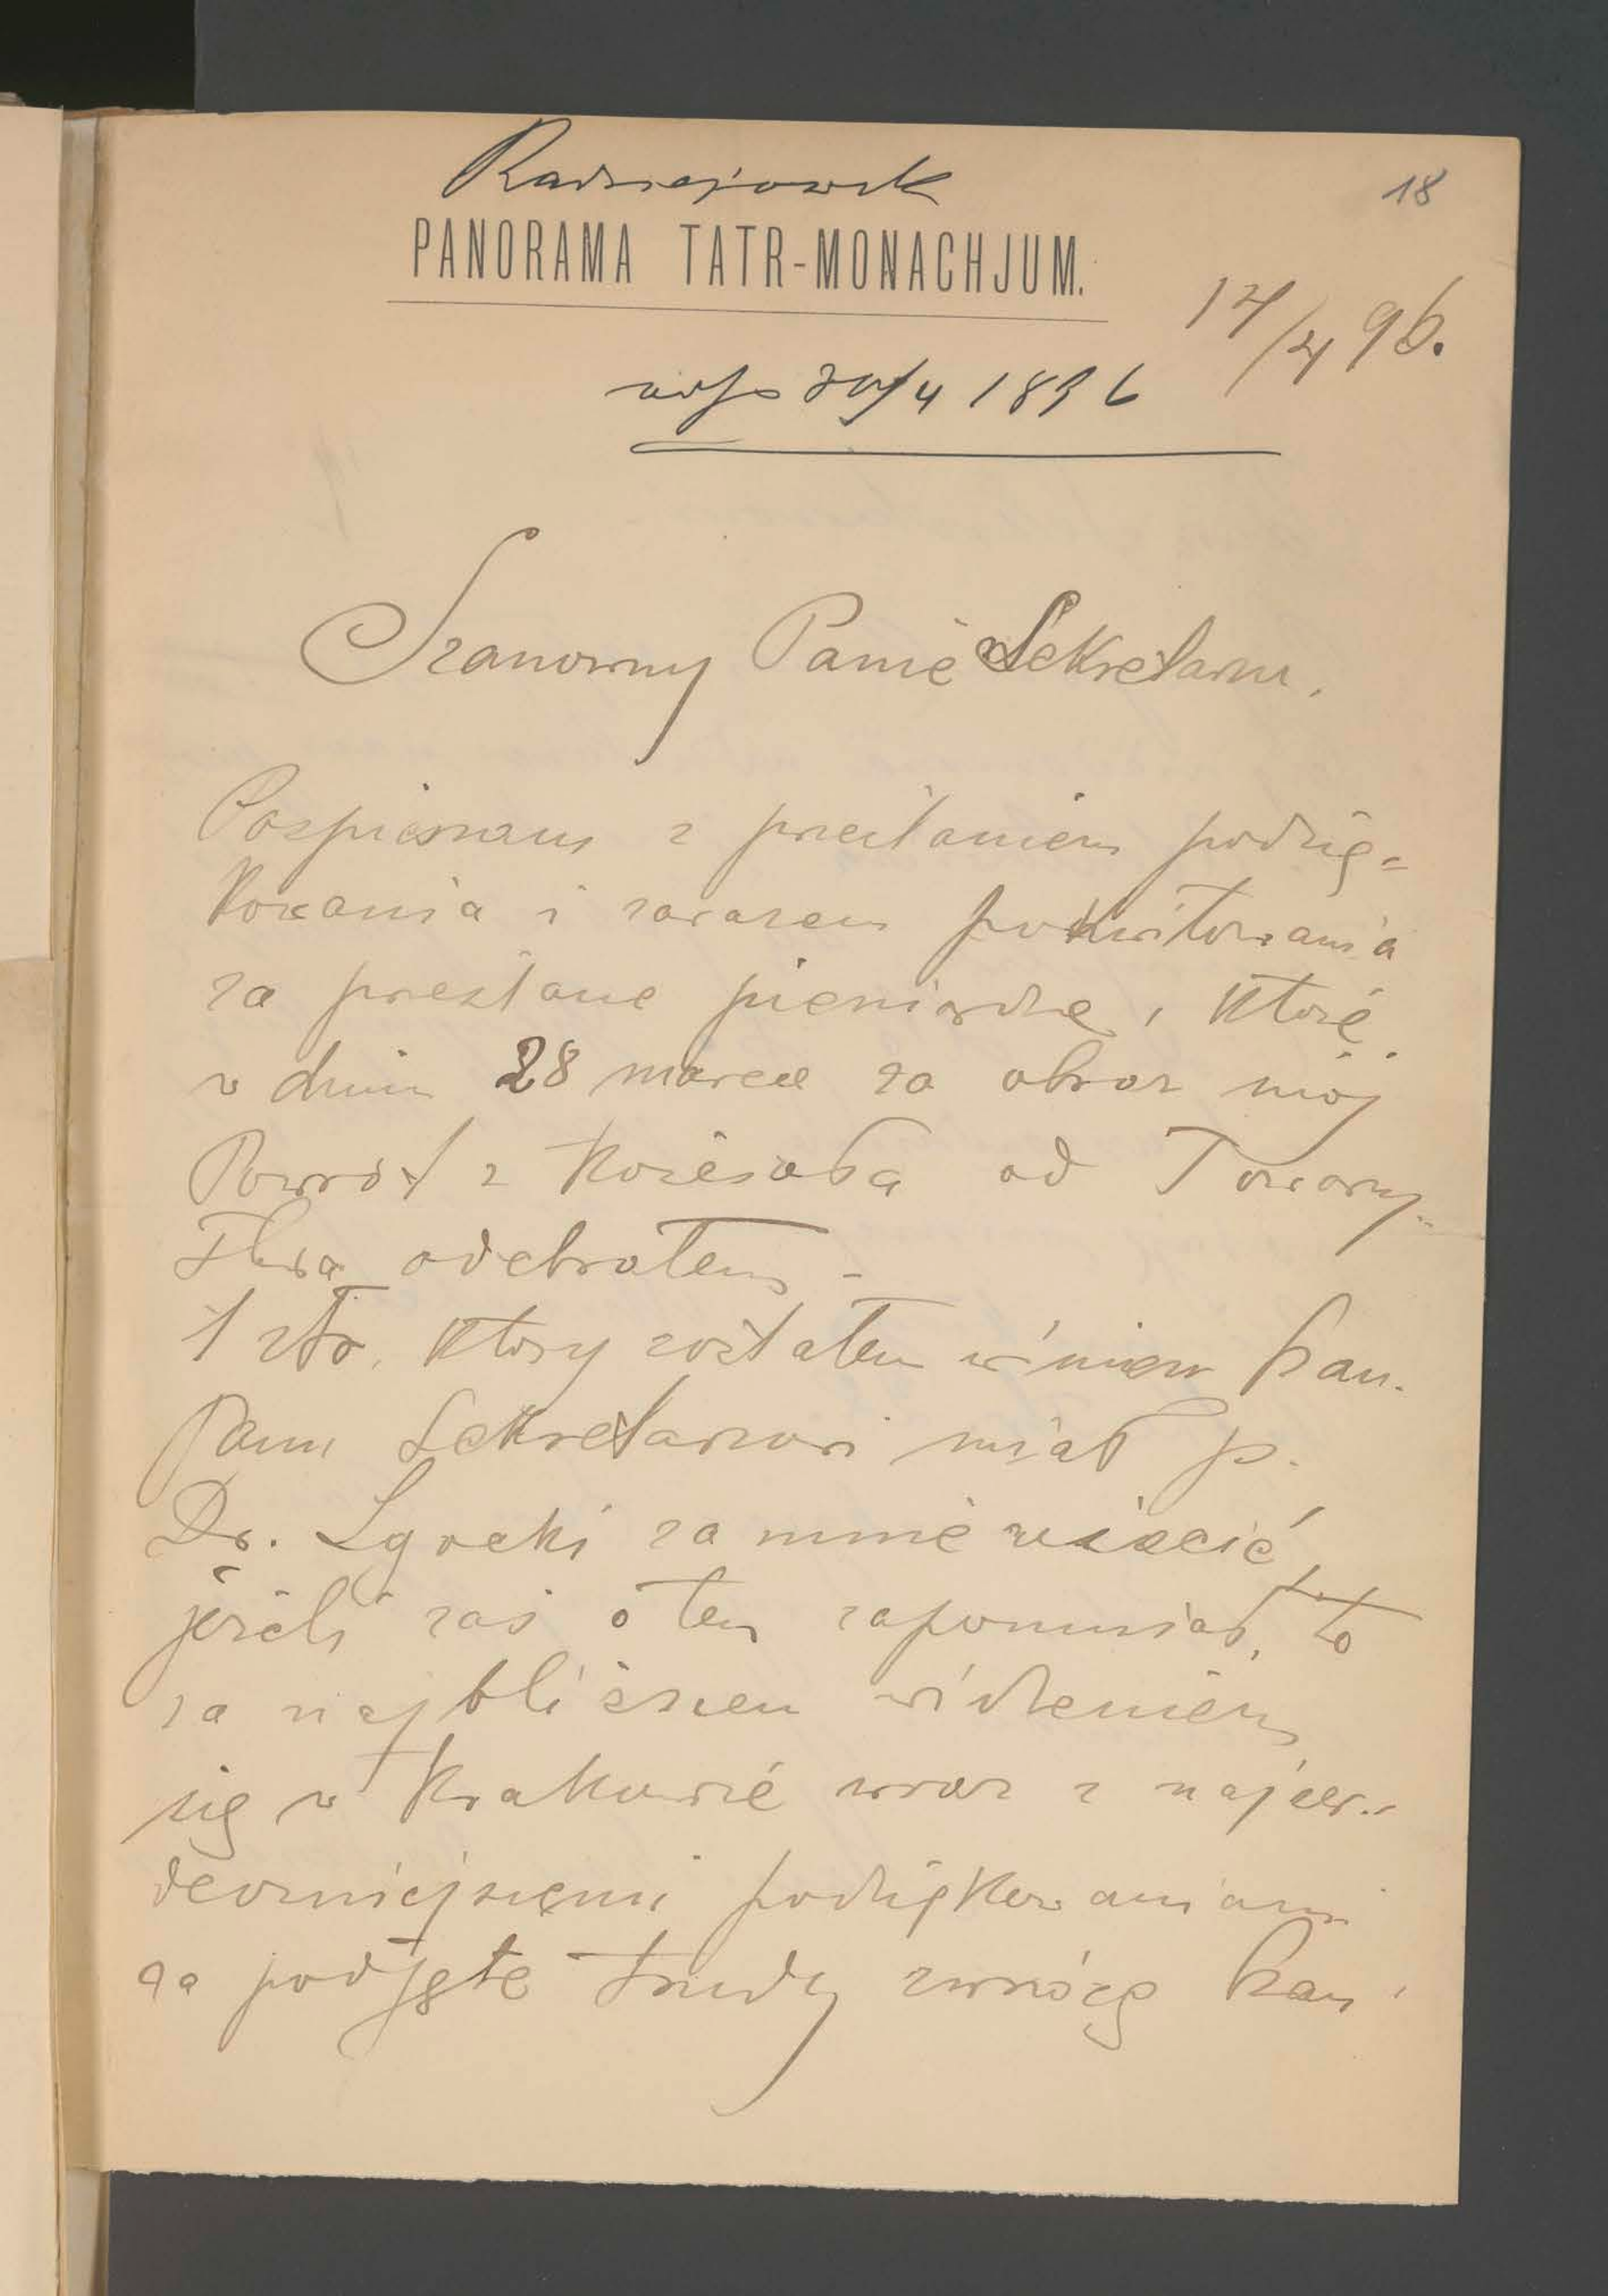 Radziejowsk
18
PANORAMA TATR-MONACHJUM.
14/4 96.
odp 20/4 1896
Szanowny Panie Sekretarzu.
Pospieszam z przesłaniem podzię=
kowania i zarazem pokwitowania
za przesłane pieniądze, które
w dniu 28 marca za obraz mój
Powrót z Kościoła od Towarzy=
stwa odebrałem –
1 złr. który został em winien Szan.
Panu Sekretarzowi miał p.
Dr. Lgocki za mnie uiścić,
jeżeli zaś o tem zapomniał, to
za najbliższem widzeniem
się w Krakowie wraz z najser=
deczniejszemi podziękowaniami
za podjęte trudy zwrócę Szan.